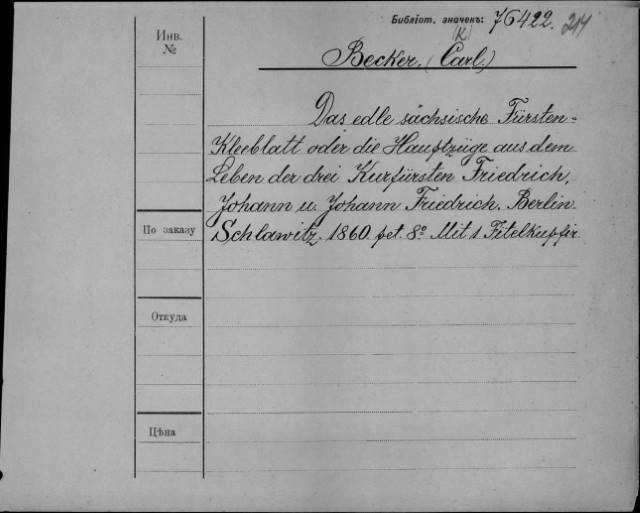 Библіот. значекъ: 76422. 214
(K)
Инв.
№
Becker. (Carl.)
Das edle sächsische Fürsten=
Kleeblatt oder die Hauptzüge aus dem
Leben der drei Kurfürsten Friedrich,
Johann u. Johann Friedrich. Berlin
По заказу
Schlawitz. 1860. pet. 8º Mit 1 Titelkupfer.
Откуда
Цѣна